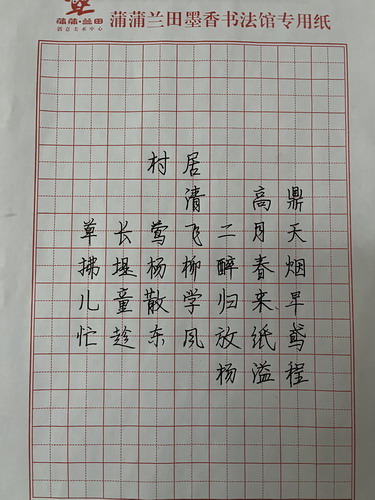 蒲蒲·兰田
创意美术中心
蒲蒲兰田墨香书法馆专用纸
村居
清 高鼎
草长莺飞二月天
拂堤杨柳醉春烟
儿童散学归来早
忙趁东风放纸鸢
杨溢程